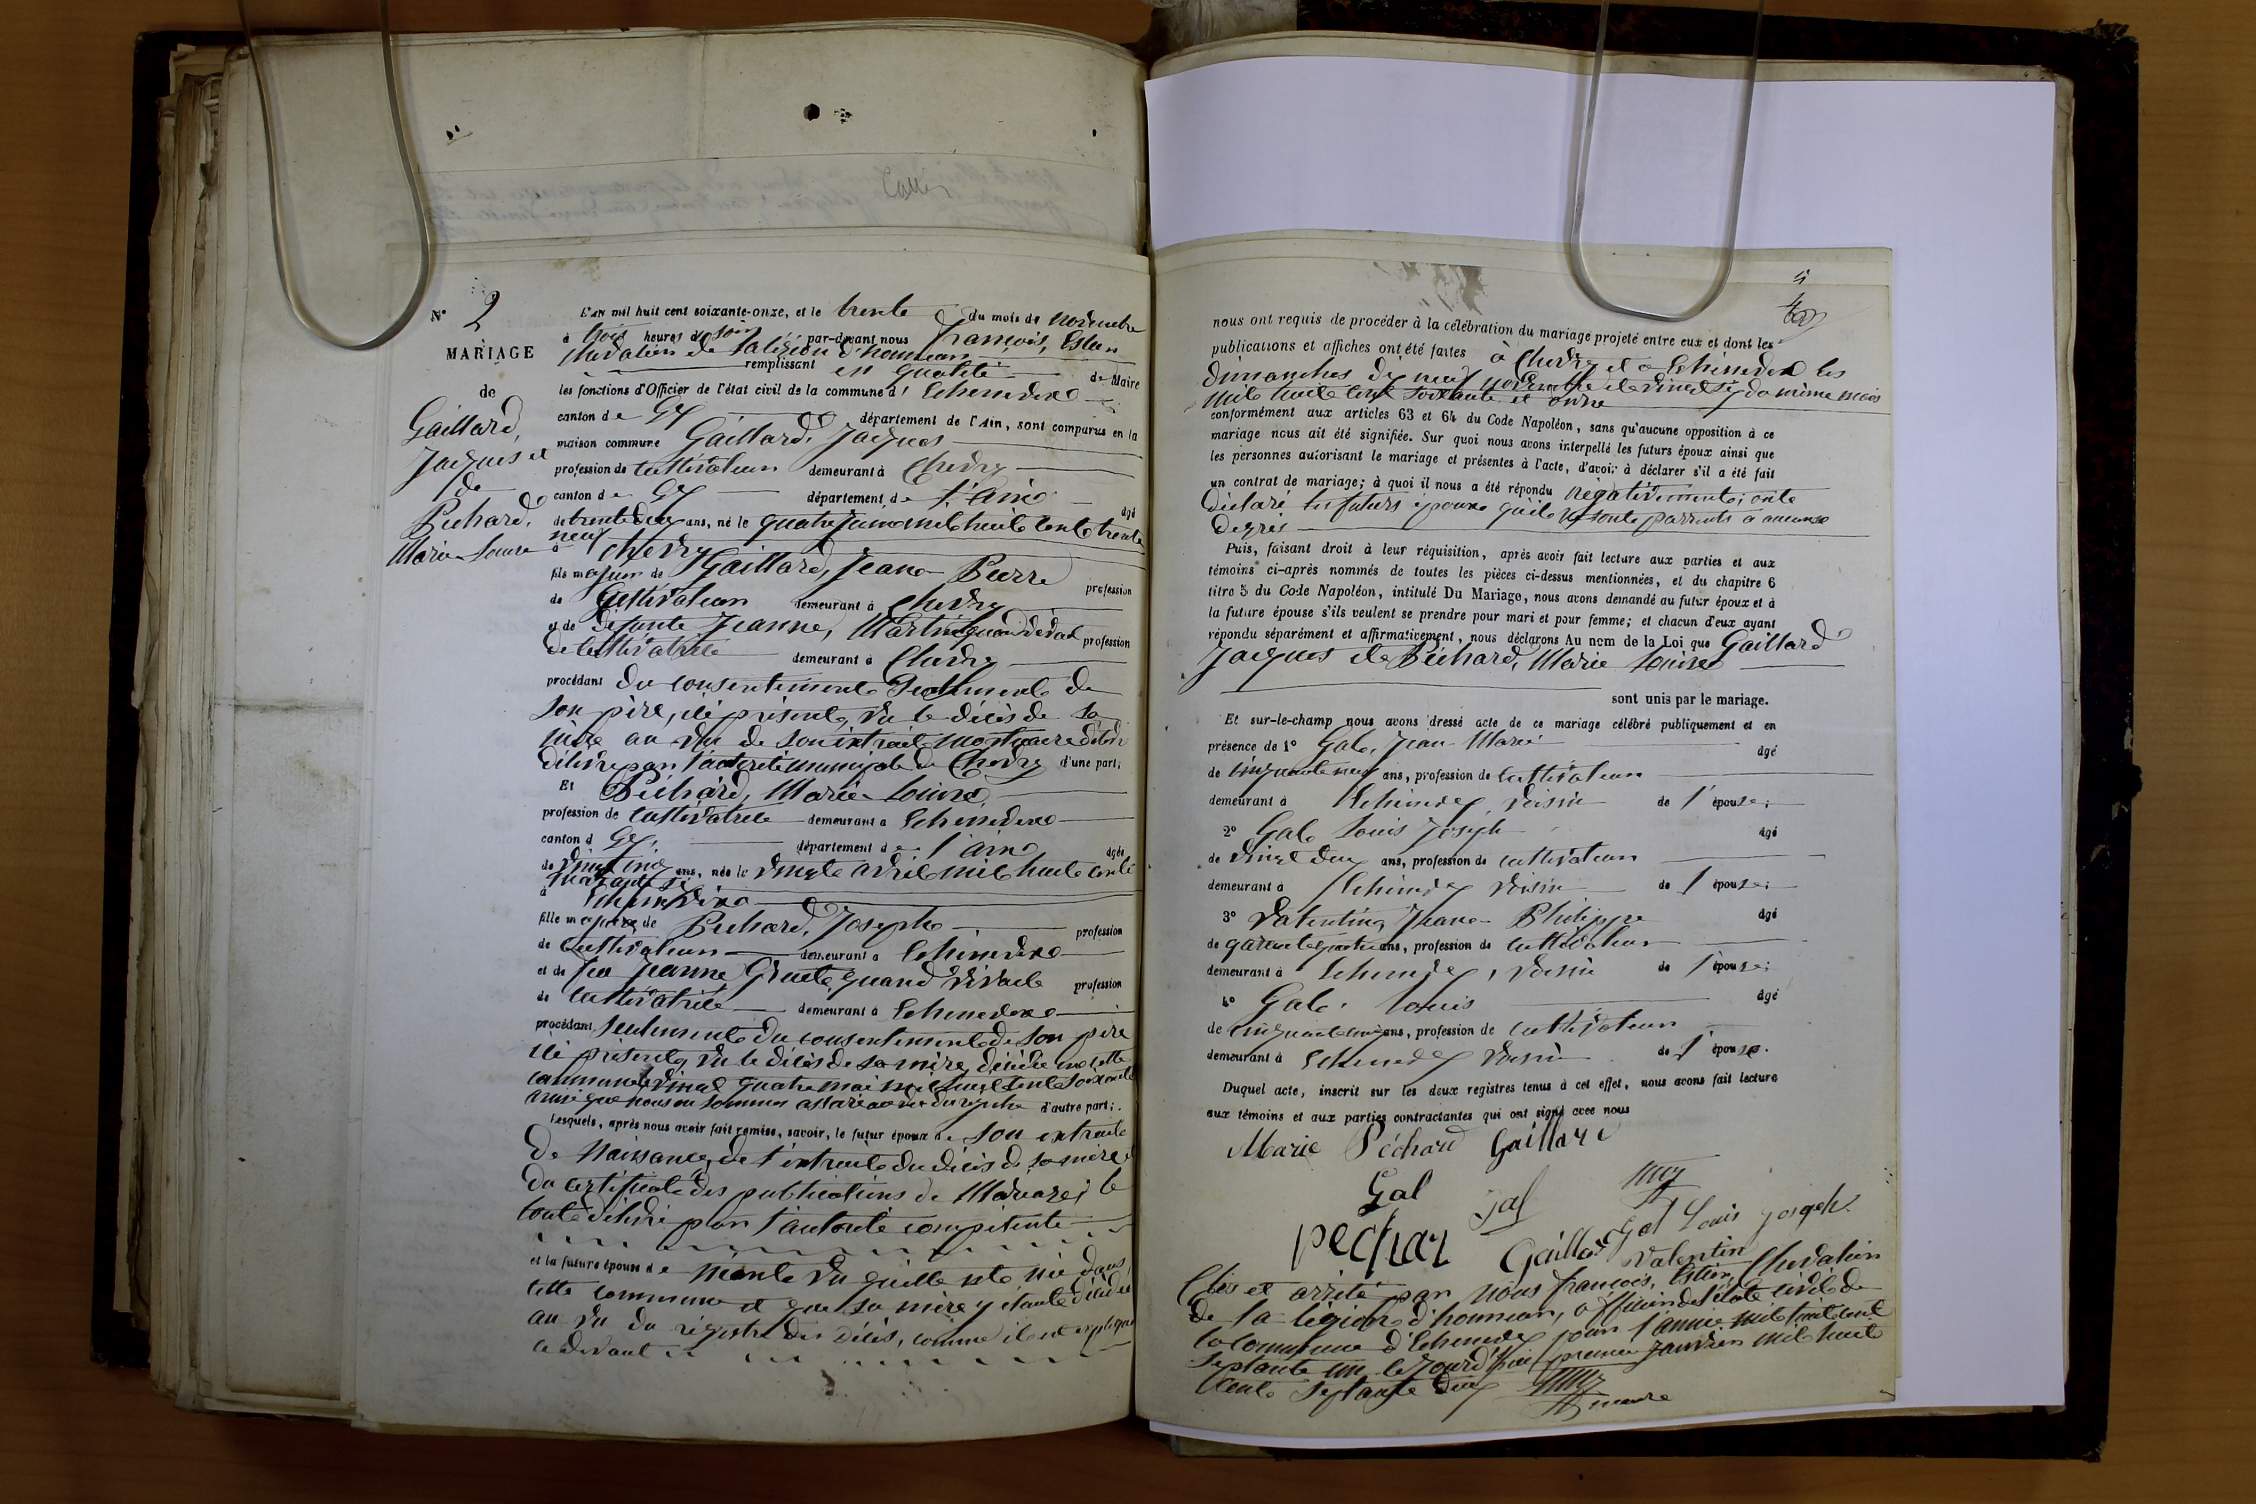 N° 2
MARIAGE
de
Gaillard,
Jacques et
de
Péchard,
Marie Louise
L'AN mil huit cent soixante-onze, et le trente du mois de novembre
à trois heures du soir par-devant nous François, Estier
chevalier de la légion d'honneur
remplissant en qualité de Maire
les fonctions d'Officier de l'état civil de la commune d' Echenevex
canton de Gex département de l'Ain, sont comparus en la
maison commune Gaillard, Jacques
profession de cultivateur demeurant à Chevry
canton de Gex département de l'ain âgé
de trente deux ans, né le quatre juin mil huit cent trente
neuf
à Chevry
fils majeur de Gaillard, Jean Pierre profession
de Cultivateur demeurant à Chevry
et de defunte Jeanne, Martin quand vivait profession
de cultivatrice demeurant à Chevry
procédant du consentement seulement de
son père, ici présent, vu le décès de sa
mère au vu de son extrait mortuaire
délivré par l'autorité municipale de Chevry d'une part;
Et Péchard, Marie Louise,
profession de cultivatrice demeurant à Echenevex
canton d Gex, département de l'ain âgée
de vingt cinq ans, née le vingt avril mil huit cent
quarante six
à Echenevex
fille majeure de Péchard, Joseph profession
de Cultivateur demeurant à Echenevex
et de feu Jeanne quand vivait profession
de cultivatrice demeurant à Echenevex
procédant seulement du consentement de son père
ici présent, vu le décès de sa mère, décédée en cette
commune le vingt quatre mai mil huit cent soixante
ainsi que nous en sommes assuré au vu du registre d'autre part;
Lesquels, après nous avoir fait remise, savoir, le futur époux de son extrait
de Naissance, de l'extrait du décès de sa mère et
du certificat des publications de Mariage; le
tout délivré par l'autorité compétente
et la future épouse de vu qu'elle est née dans
cette commune et que sa mère y étant décédée
au vu du régistre des décès, comme il est expliqué
ci devant
nous ont requis de procéder à la célébration du mariage projeté entre eux et dont les
publications et affiches ont été faites à Chevry et à Echenevex les
dimanches dix neuf novembre et vingt six du même mois
mil huit cent soixante et onze
conformément aux articles 63 et 64 du Code Napoléon, sans qu'aucune opposition à ce
mariage nous ait été signifiée. Sur quoi nous avons interpellé les futurs époux ainsi que
les personnes autorisant le mariage et présentes à l'acte, d'avoir à déclarer s'il a été fait
un contrat de mariage; à quoi il nous a été répondu négativement; ont
déclaré les futurs époux qu'ils ne sont parents à aucuns
degrés
Puis, faisant droit à leur réquisition, après avoir fait lecture aux parties et aux
témoins ci-après nommés de toutes les pièces ci-dessus mentionnées, et du chapitre 6
titre 5 du Code Napoléon, intitulé Du Mariage, nous avons demandé au futur époux et à
la future épouse s'ils veulent se prendre pour mari et pour femme; et chacun d'eux ayant
répondu séparément et affirmativement, nous déclarons Au nom de la Loi que Gaillard
Jacques et Péchard, Marie Louise
sont unis par le mariage.
Et sur-le-champ nous avons dressé acte de ce mariage célébré publiquement et en
présence de 1° Gal, Jean Marie âgé
de cinquante neuf ans, profession de cultivateur
demeurant à Echenevex voisin de l' épouse;
2° Gal Louis Joseph âgé
de vingt deux ans, profession de cultivateur
demeurant à Echenevex voisin de l' épouse;
3° Valentin, Jean Philippe âgé
de quarante quatre ans, profession de cultivateur
demeurant à Echenevex, voisin de l' épouse;
4° Gal, Louis âgé
de cinquante cinq ans, profession de cultivateur
demeurant à Echenevex voisin de l' épouse.
Duquel acte, inscrit sur les deux registres tenus à cet effet, nous avons fait lecture
aux témoins et aux parties contractantes qui ont signé avec nous
Marie Péchard Gaillard
Gal gal
Pechar Gaillard Gal Louis joseph
Valentin
Clos et arrêté par nous François, Estier, Chevalier
de la légion d'honneur, officier de l'état civil de
la Commune d'Echenevex pour l'année mil huit cent
septante un le jourd'hui premier janvier mil huit
cent septante deux
maire